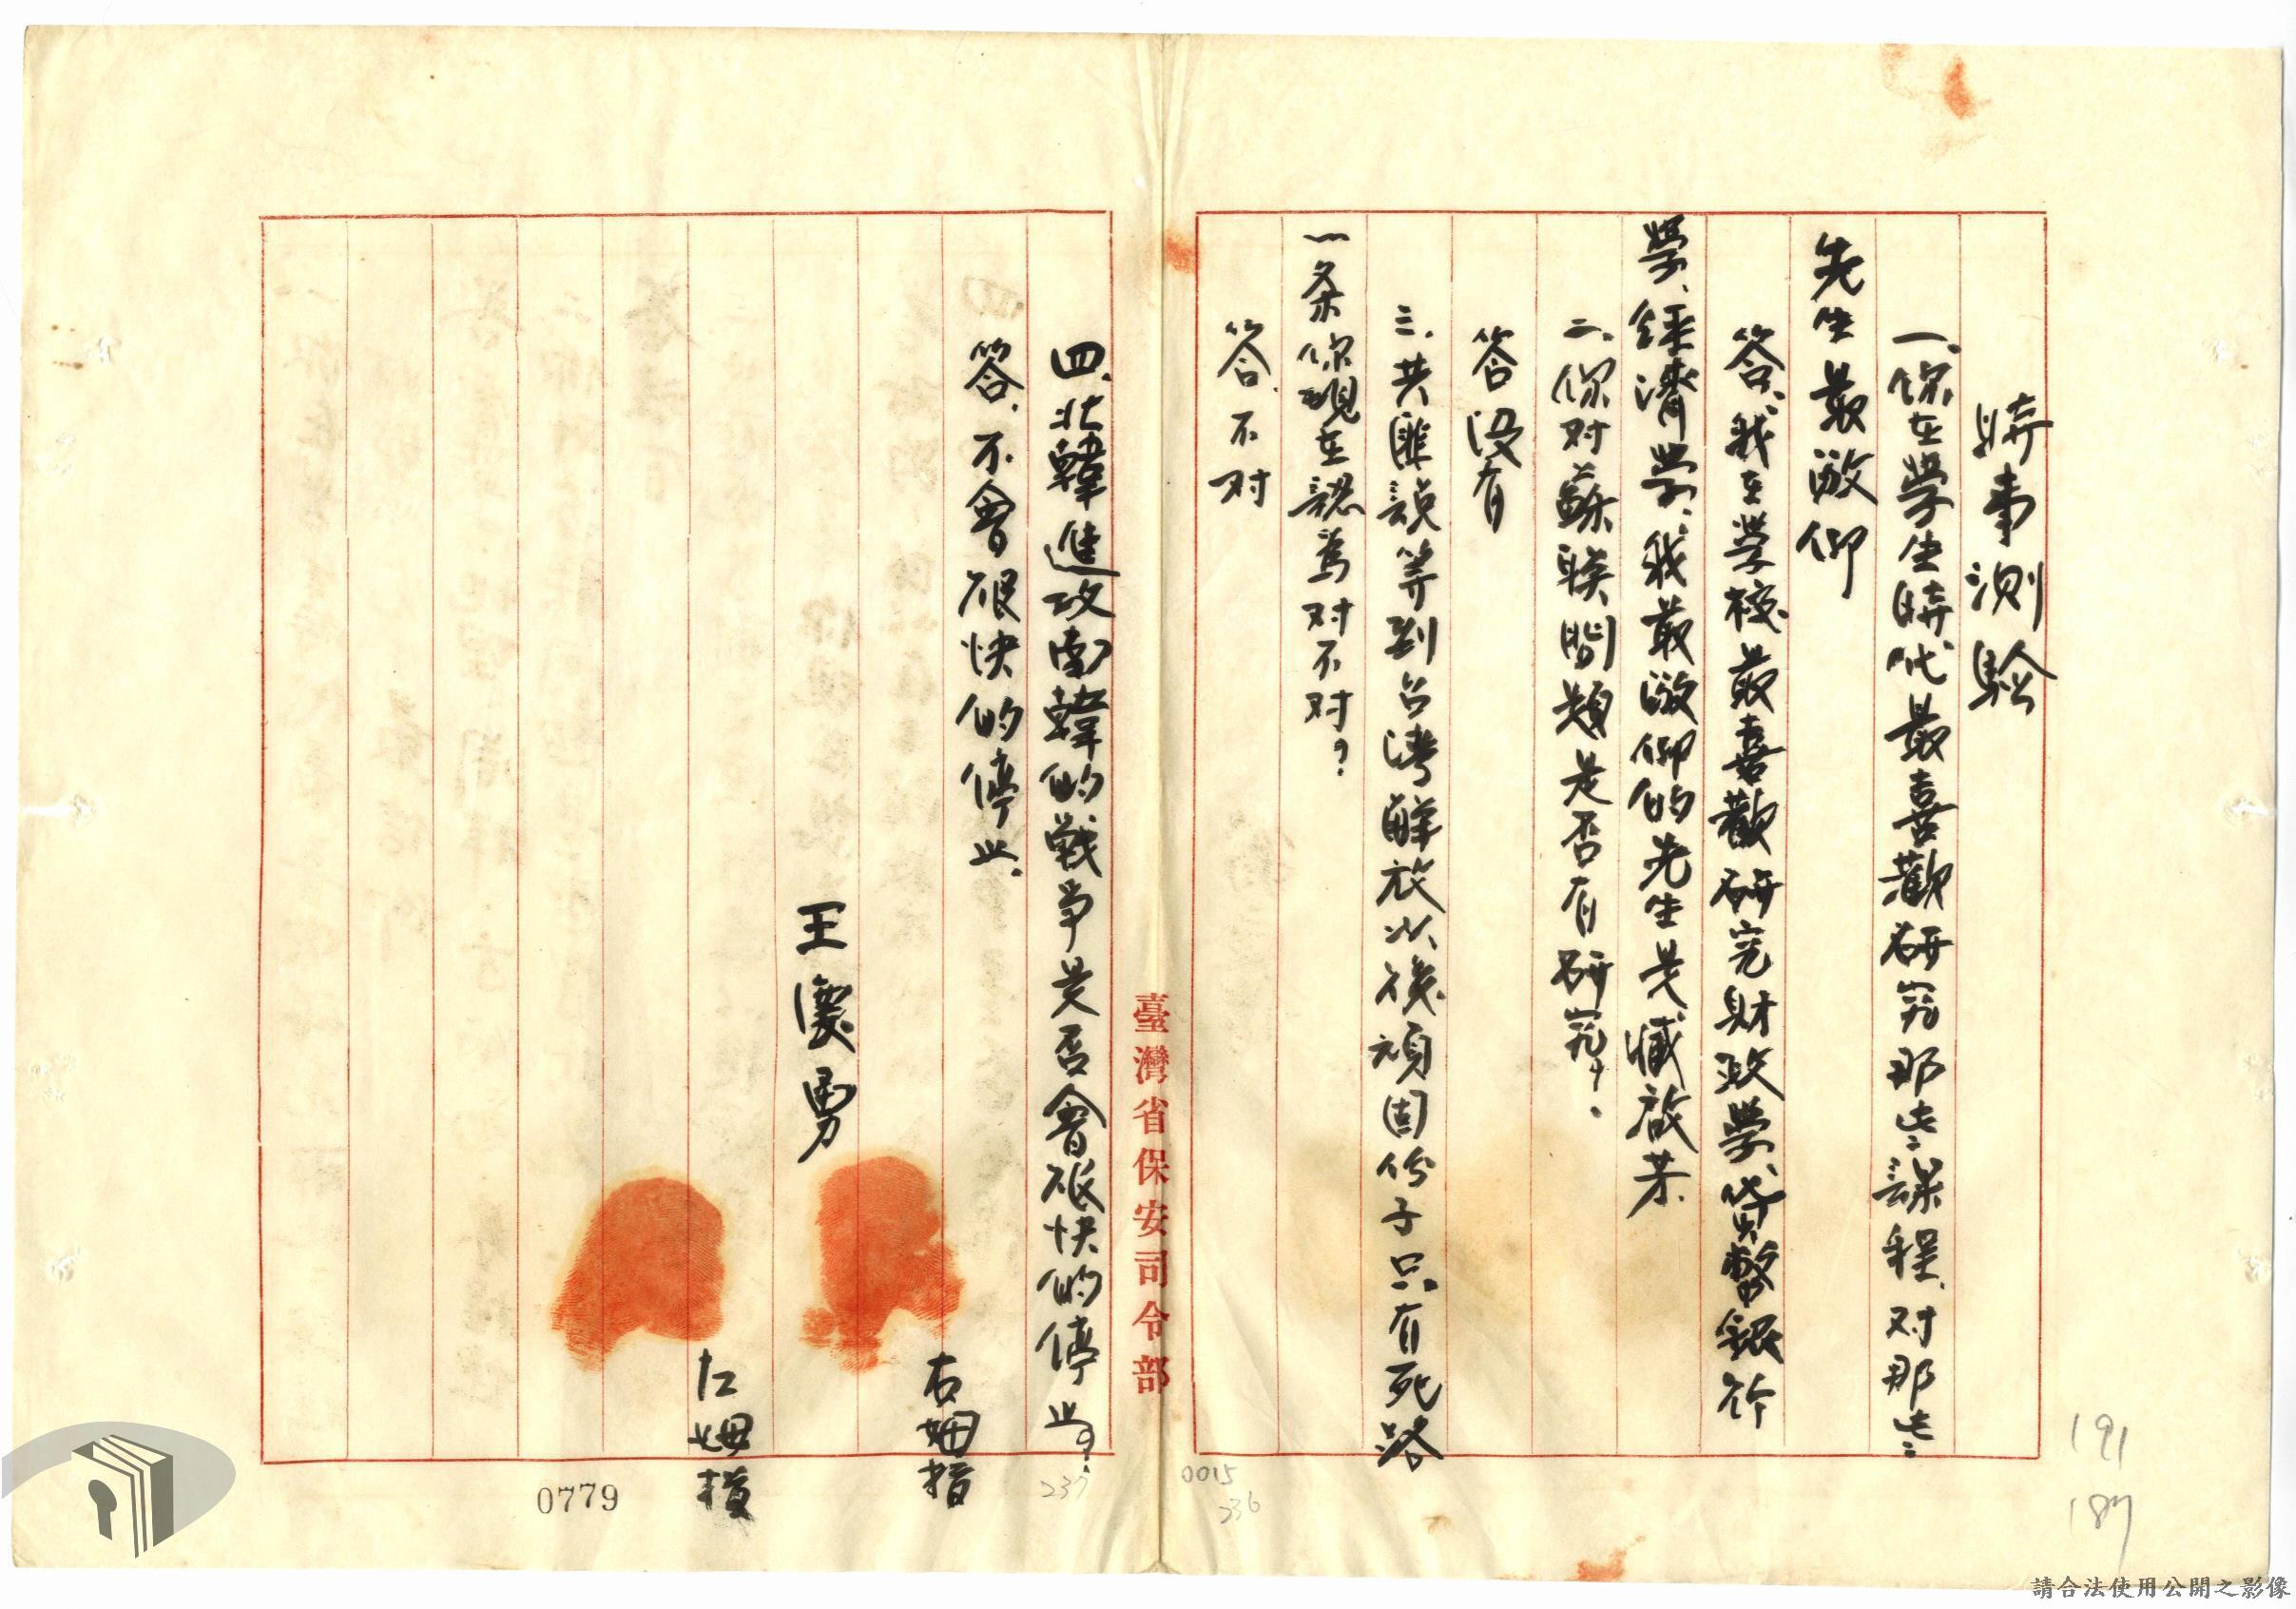 時事測驗
一、你在學生時代最喜歡研究那些課程、对那些
先生最敬仰
答、我在學校最喜歡研究財政學、貨幣銀行
學、經濟學、我最敬仰的先生是臧啟芳.
二、你对蘇聯問題是否有研究?
答没有
三、共匪說等到台湾解放以後頑固份子只有死路
一条你現在認為对不对?
答、不对
臺灣省保安司令部
四、北韓進攻南韓的戰爭是否會很快的停止?
答、不會很快的停止.
王 勇
右姆指
左姆指
0779
237
0015
236
191
187
請合法使用公開之影像